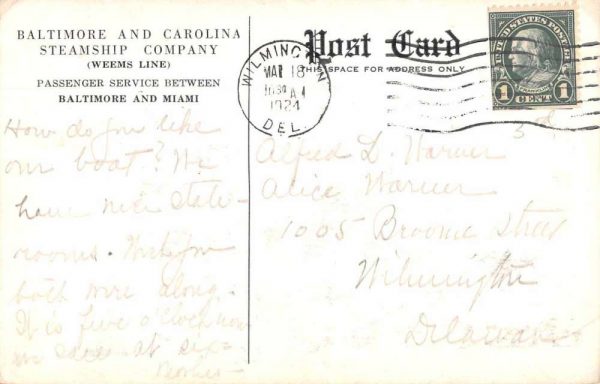 BALTIMORE AND CAROLINA
STEAMSHIP COMPANY
(WEEMS LINE)
PASSENGER SERVICE BETWEEN
BALTIMORE AND MIAMI
How do you like
our boat? We
have nice state-
rooms. Wish you
both were along.
It is five o'clock now
we sail at six-
Post Card
THIS SPACE FOR ADDRESS ONLY
WILMINGTON
MAR 18
1030 A.M
1924
DEL.
UNITED STATES POSTAGE
FRANKLIN
1 CENT 1
Alfred D. Warner
Alice Warner
1005 Broome Street
Wilmington
Delaware